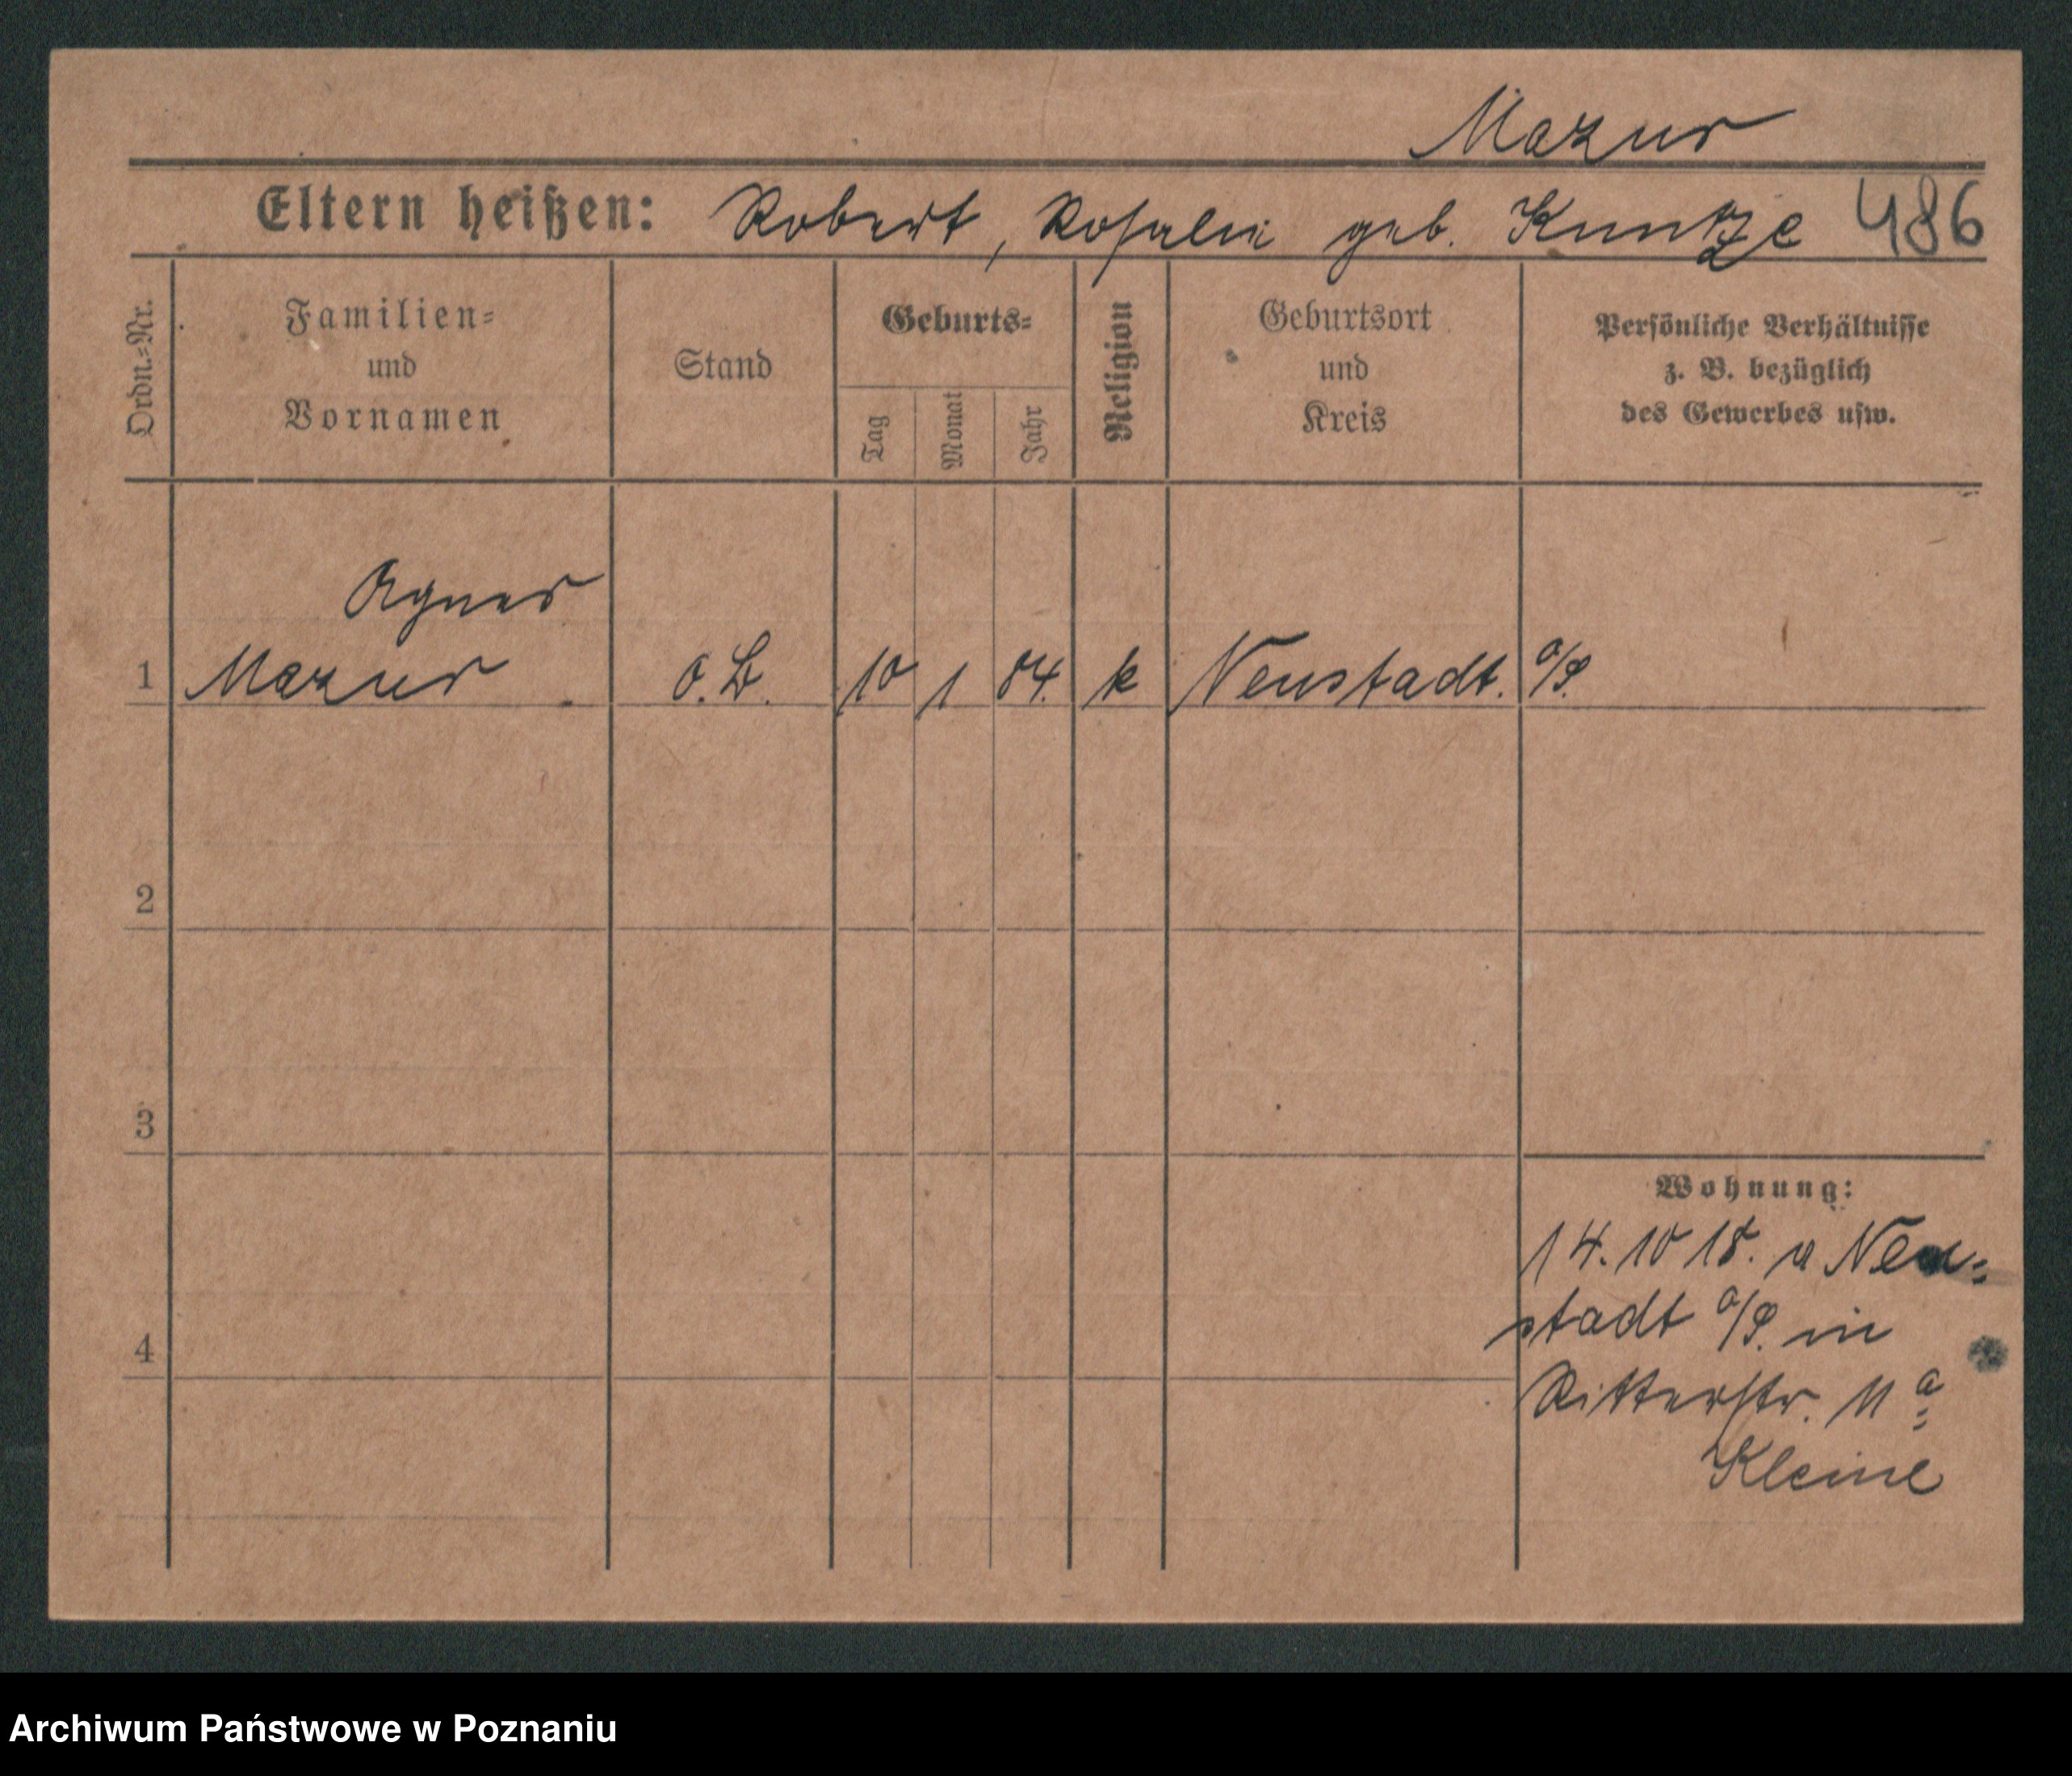 Mazur
Eltern heißen: Robert, Rosalie geb. Kuntze 486
Ordn.=Nr.
Familien=
und
Vornamen
Stand
Geburts=
Tag
Monat
Jahr
Religion
Geburtsort
und
Kreis
Persönliche Verhältnisse
z. B. bezüglich
des Gewerbes usw.
Agnes
1 Mazur O.B. 10 1 84. k Neustadt. O/S.
2
3
4
Wohnung:
14.10 18. v Neu=
stadt O/S. in
Ritterstr. 11 a
Kleine
Archiwum Państwowe w Poznaniu